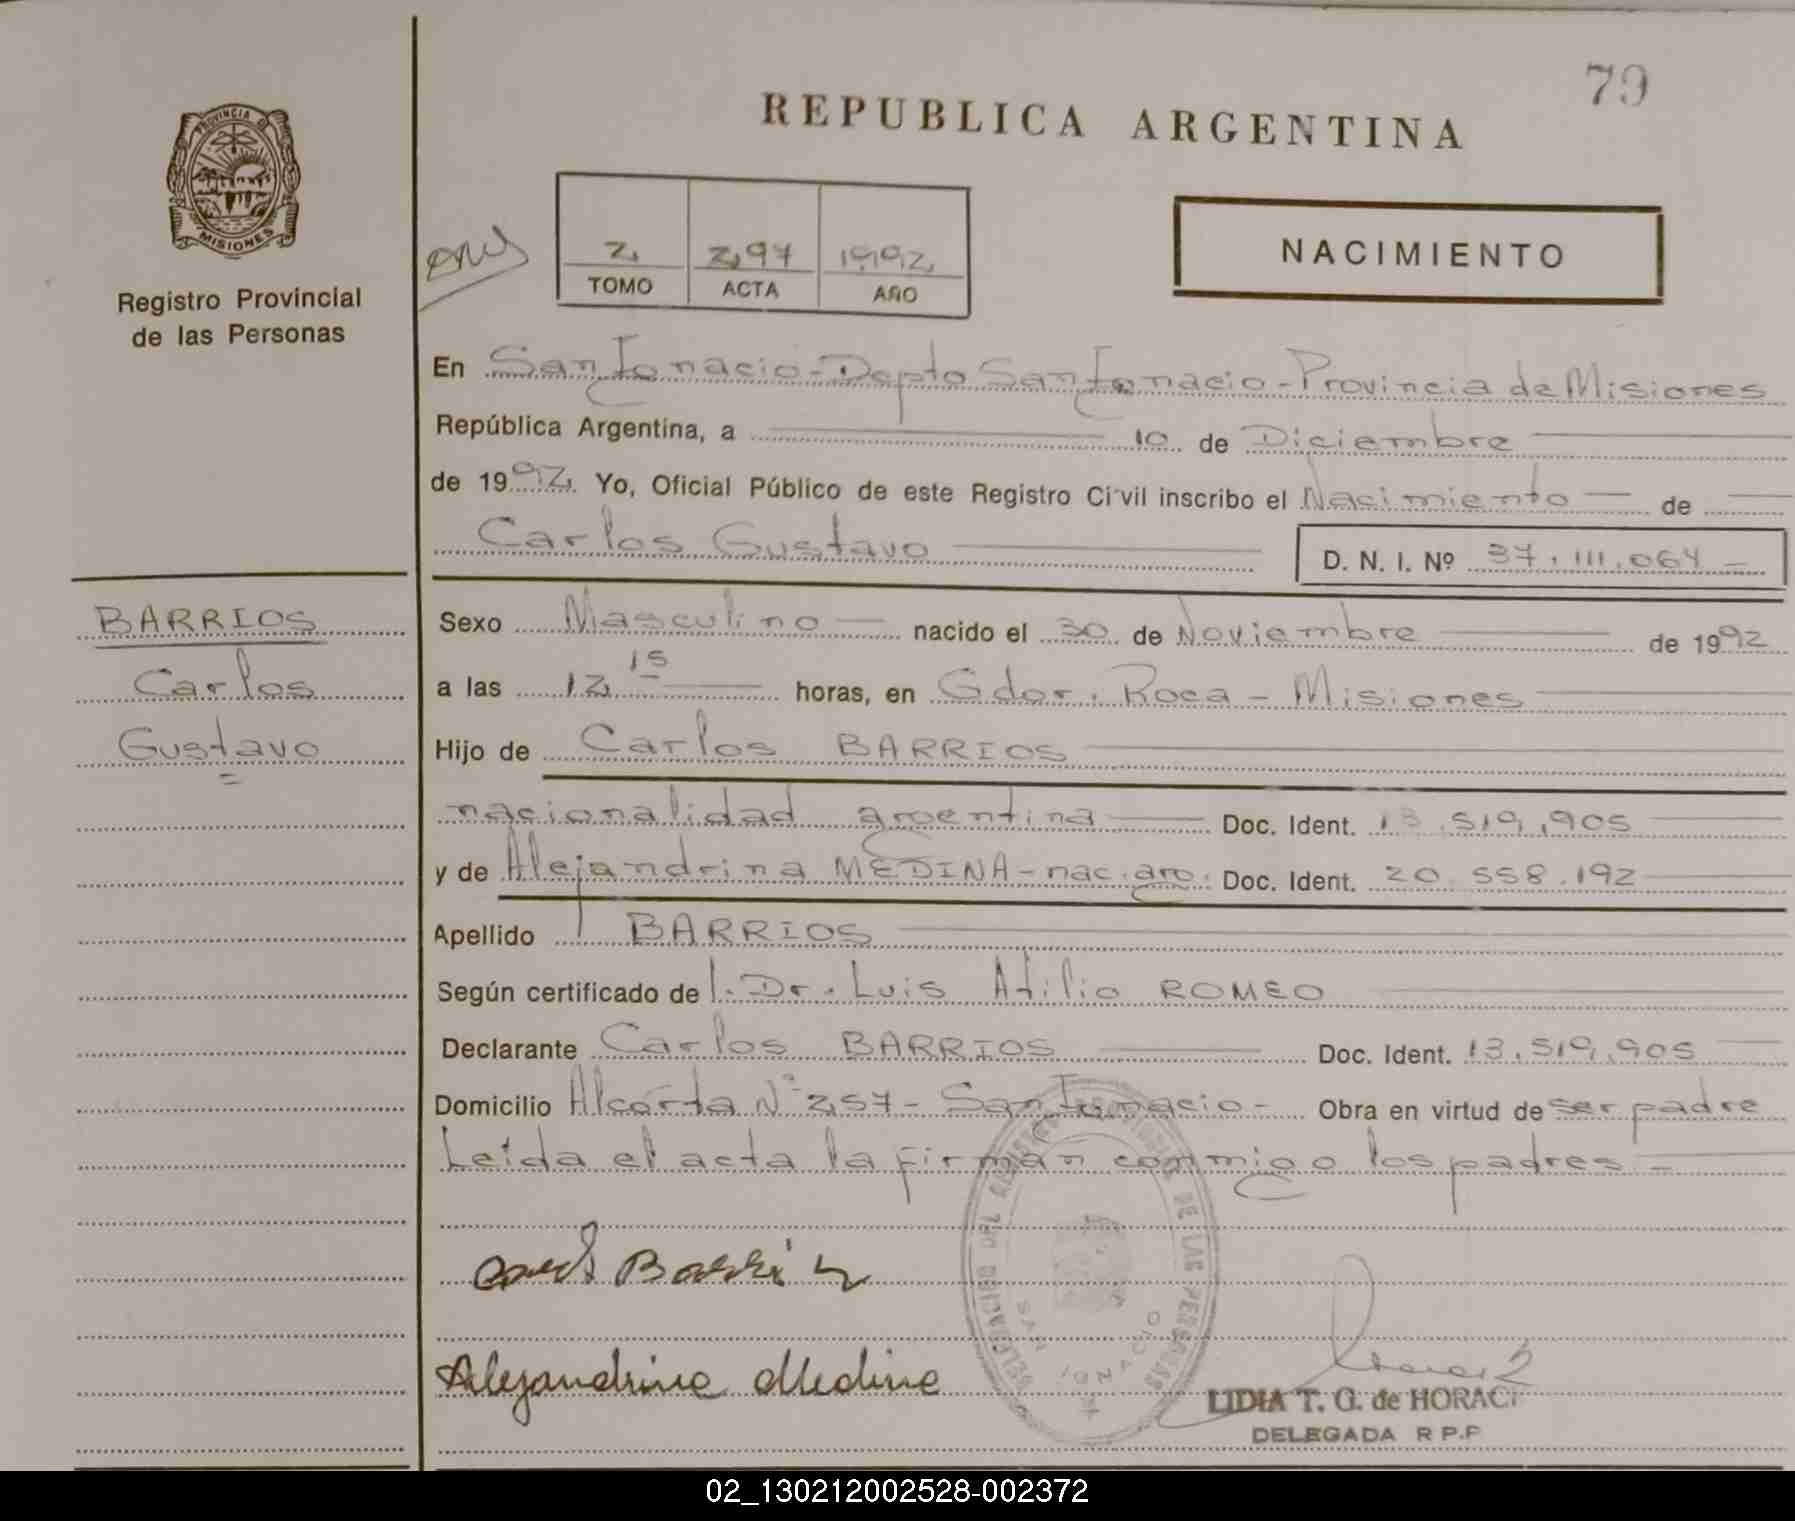 79
REPUBLICA ARGENTINA
PROVINCIA DE
MISIONES
Registro Provincial
de las Personas
2 297 1992
TOMO ACTA AÑO
NACIMIENTO
En San Ignacio - Depto San Ignacio - Provincia de Misiones
República Argentina, a 10 de Diciembre
de 1992 Yo, Oficial Público de este Registro Civil inscribo el Nacimiento de
Carlos Gustavo D. N. I. Nº 37.111.064
BARRIOS
Carlos
Gustavo
Sexo Masculino nacido el 30 de Noviembre de 1992
a las 12 15 horas, en Gdor. Roca - Misiones
Hijo de Carlos BARRIOS
nacionalidad argentina Doc. Ident. 13.519.905
y de Alejandrina MEDINA - nac. arg. Doc. Ident. 20.558.192
Apellido BARRIOS
Según certificado de l. Dr. Luis Atilio ROMEO
Declarante Carlos BARRIOS Doc. Ident. 13.519.905
Domicilio Alcorta Nº 257 - San Ignacio - Obra en virtud de ser padre
Leida el acta la firman conmigo los padres -
Barrios
Alejandrina Medina
SAN IGNACIO
LIDIA T. G. de HORACI
DELEGADA R P.P
02_130212002528-002372